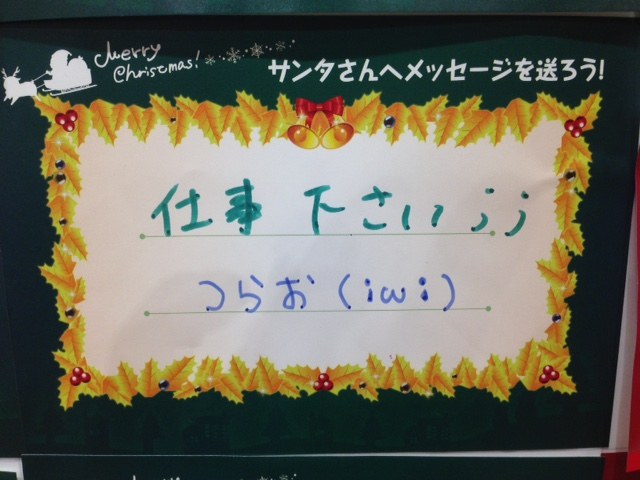 Merry
Christmas!
サンタさんへメッセージを送ろう!
仕事 下さい ;;
つらお(iωi)